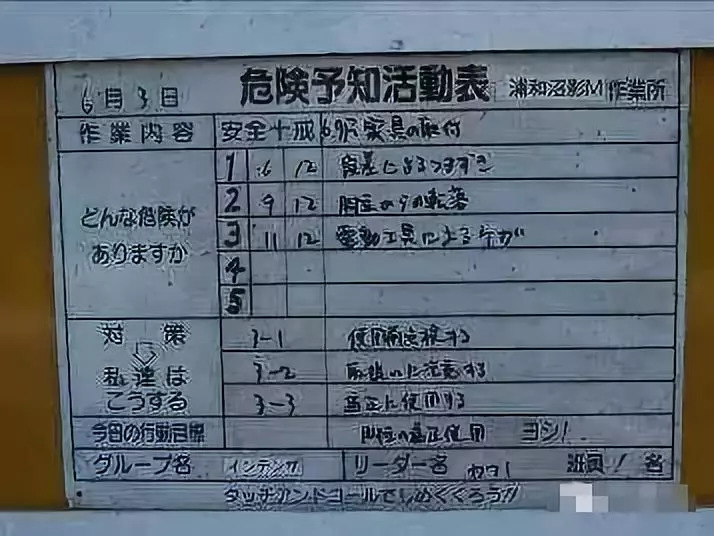 6月3日 危険予知活動表 浦和沼影M作業所
作業内容 安全十戒 家具の取付
どんな危険が
ありますか
1 6 12 段差によるつまずき
2 9 12 脚立からの転落
3 11 12 電動工具によるケガ
4
5
対策
私達は
こうする
3-1
3-2 に注意する
3-3 適正に使用する
今日の行動目標 脚立の適正使用 ヨシ!
グループ名 インテリア リーダー名 班員1名
タッチアンドコールでしめくくろう!!